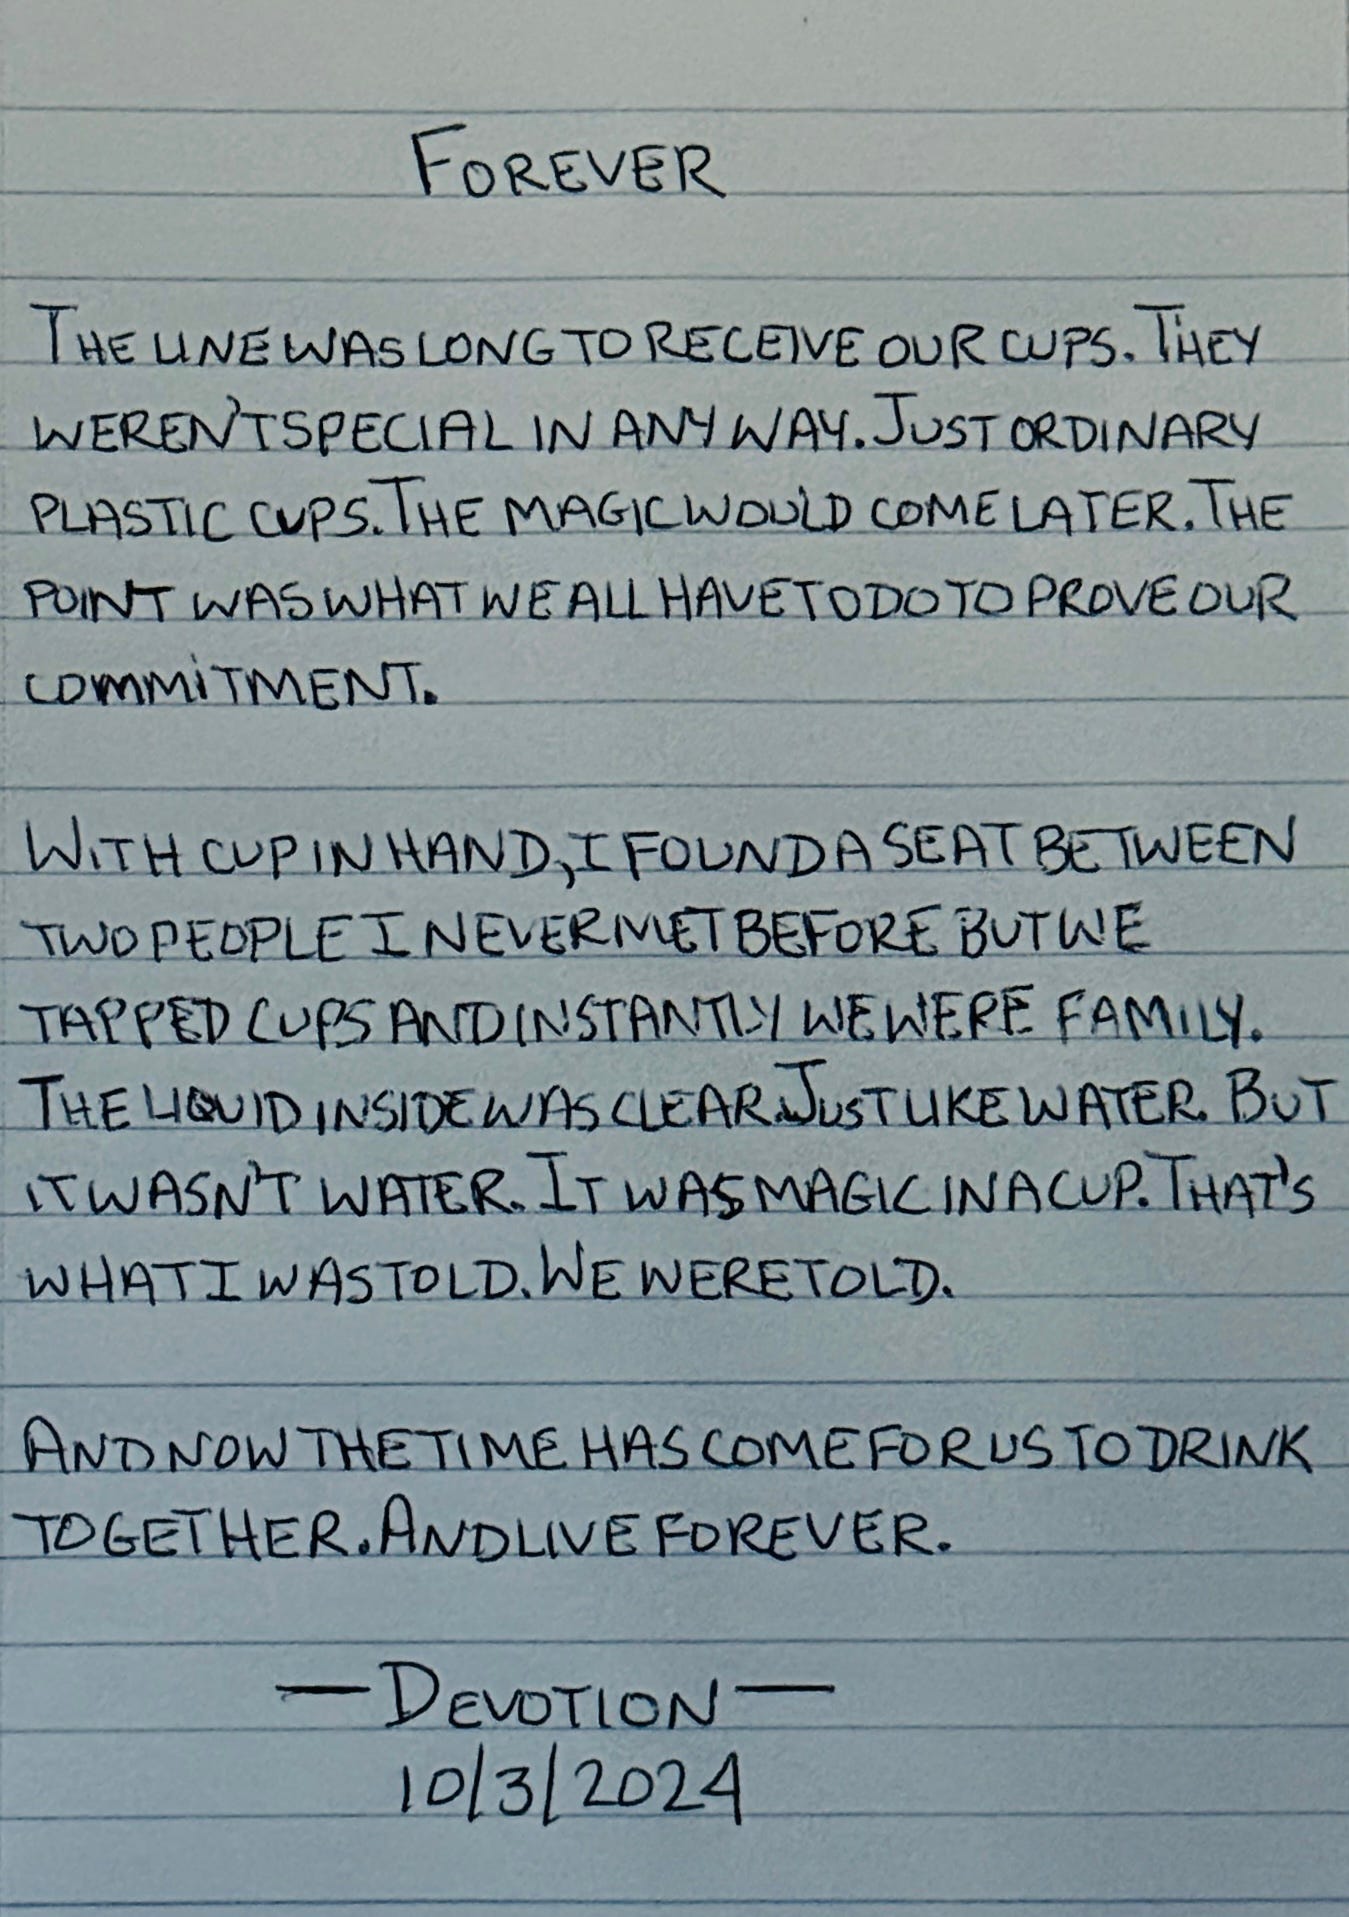 FOREVER
THE LINE WAS LONG TO RECEIVE OUR CUPS. THEY
WEREN'T SPECIAL IN ANY WAY. JUST ORDINARY
PLASTIC CUPS. THE MAGIC WOULD COME LATER. THE
POINT WAS WHAT WE ALL HAVE TO DO TO PROVE OUR
COMMITMENT.
WITH CUP IN HAND, I FOUND A SEAT BETWEEN
TWO PEOPLE I NEVER MET BEFORE BUT WE
TAPPED CUPS AND INSTANTLY WE WERE FAMILY.
THE LIQUID INSIDE WAS CLEAR. JUST LIKE WATER. BUT
IT WASN'T WATER. IT WAS MAGIC IN A CUP. THAT'S
WHAT I WAS TOLD. WE WERE TOLD.
AND NOW THE TIME HAS COME FOR US TO DRINK
TOGETHER. AND LIVE FOREVER.
— DEVOTION —
10/3/2024